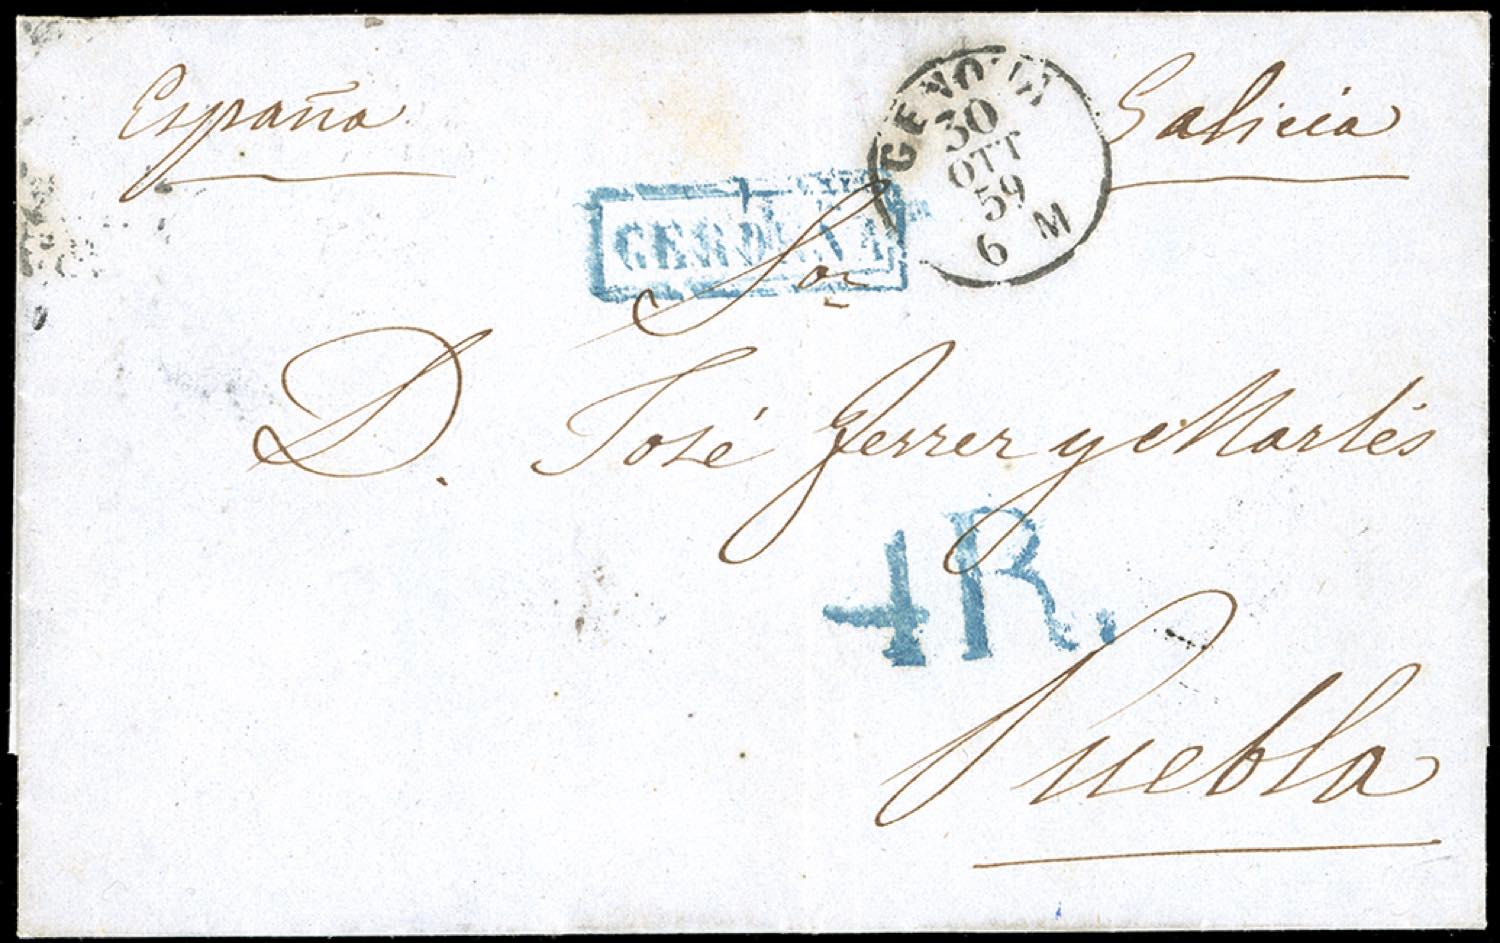 España
Galicia
GENOVA
30
OTT
59
6 M
CERDEÑA
Sor
D. José Ferrer y Martés
4R.
Puebla